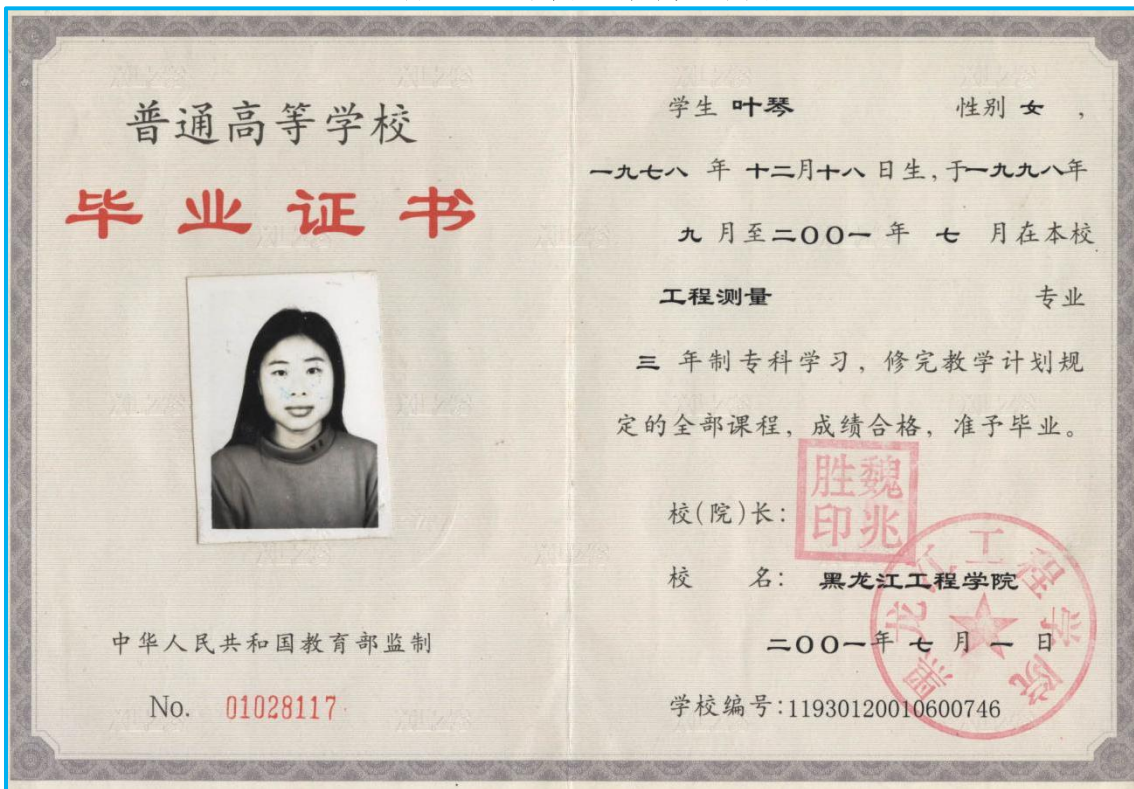 普通高等学校
毕业证书
中华人民共和国教育部监制
No. 01028117
学生 叶琴 性别 女 ,
一九七八 年 十二月十八 日生,于一九九八年
九 月至二〇〇一 年 七 月在本校
工程测量 专业
三 年制专科学习, 修完教学计划规
定的全部课程, 成绩合格, 准予毕业。
校(院)长:
魏兆胜印
校 名: 黑龙江工程学院
二〇〇一年 七 月 一 日
学校编号:11930120010600746
黑龙江工程学院